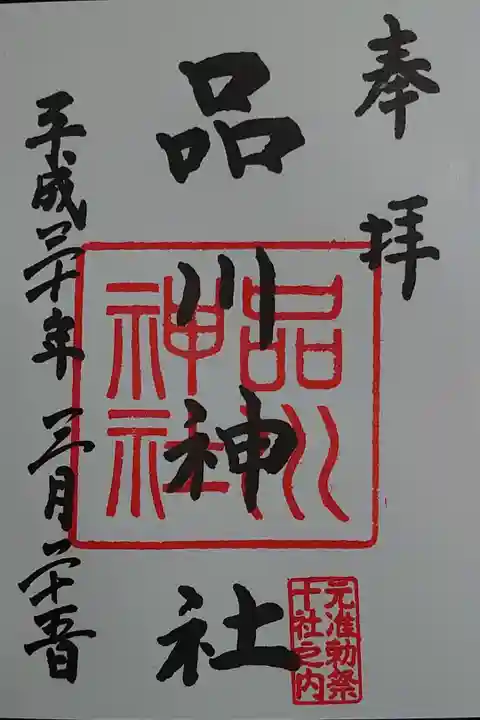 奉拝
品川神社
品川神社
元准勅祭
十社之内
平成三十年 三月二十五日